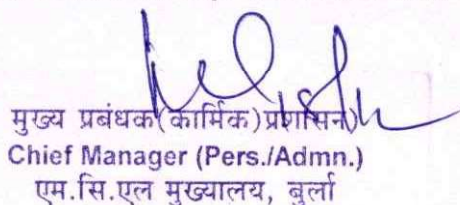 मुख्य प्रबंधक(कार्मिक)प्रशासन)
Chief Manager (Pers./Admn.)
एम.सि.एल मुख्यालय, बुर्ला